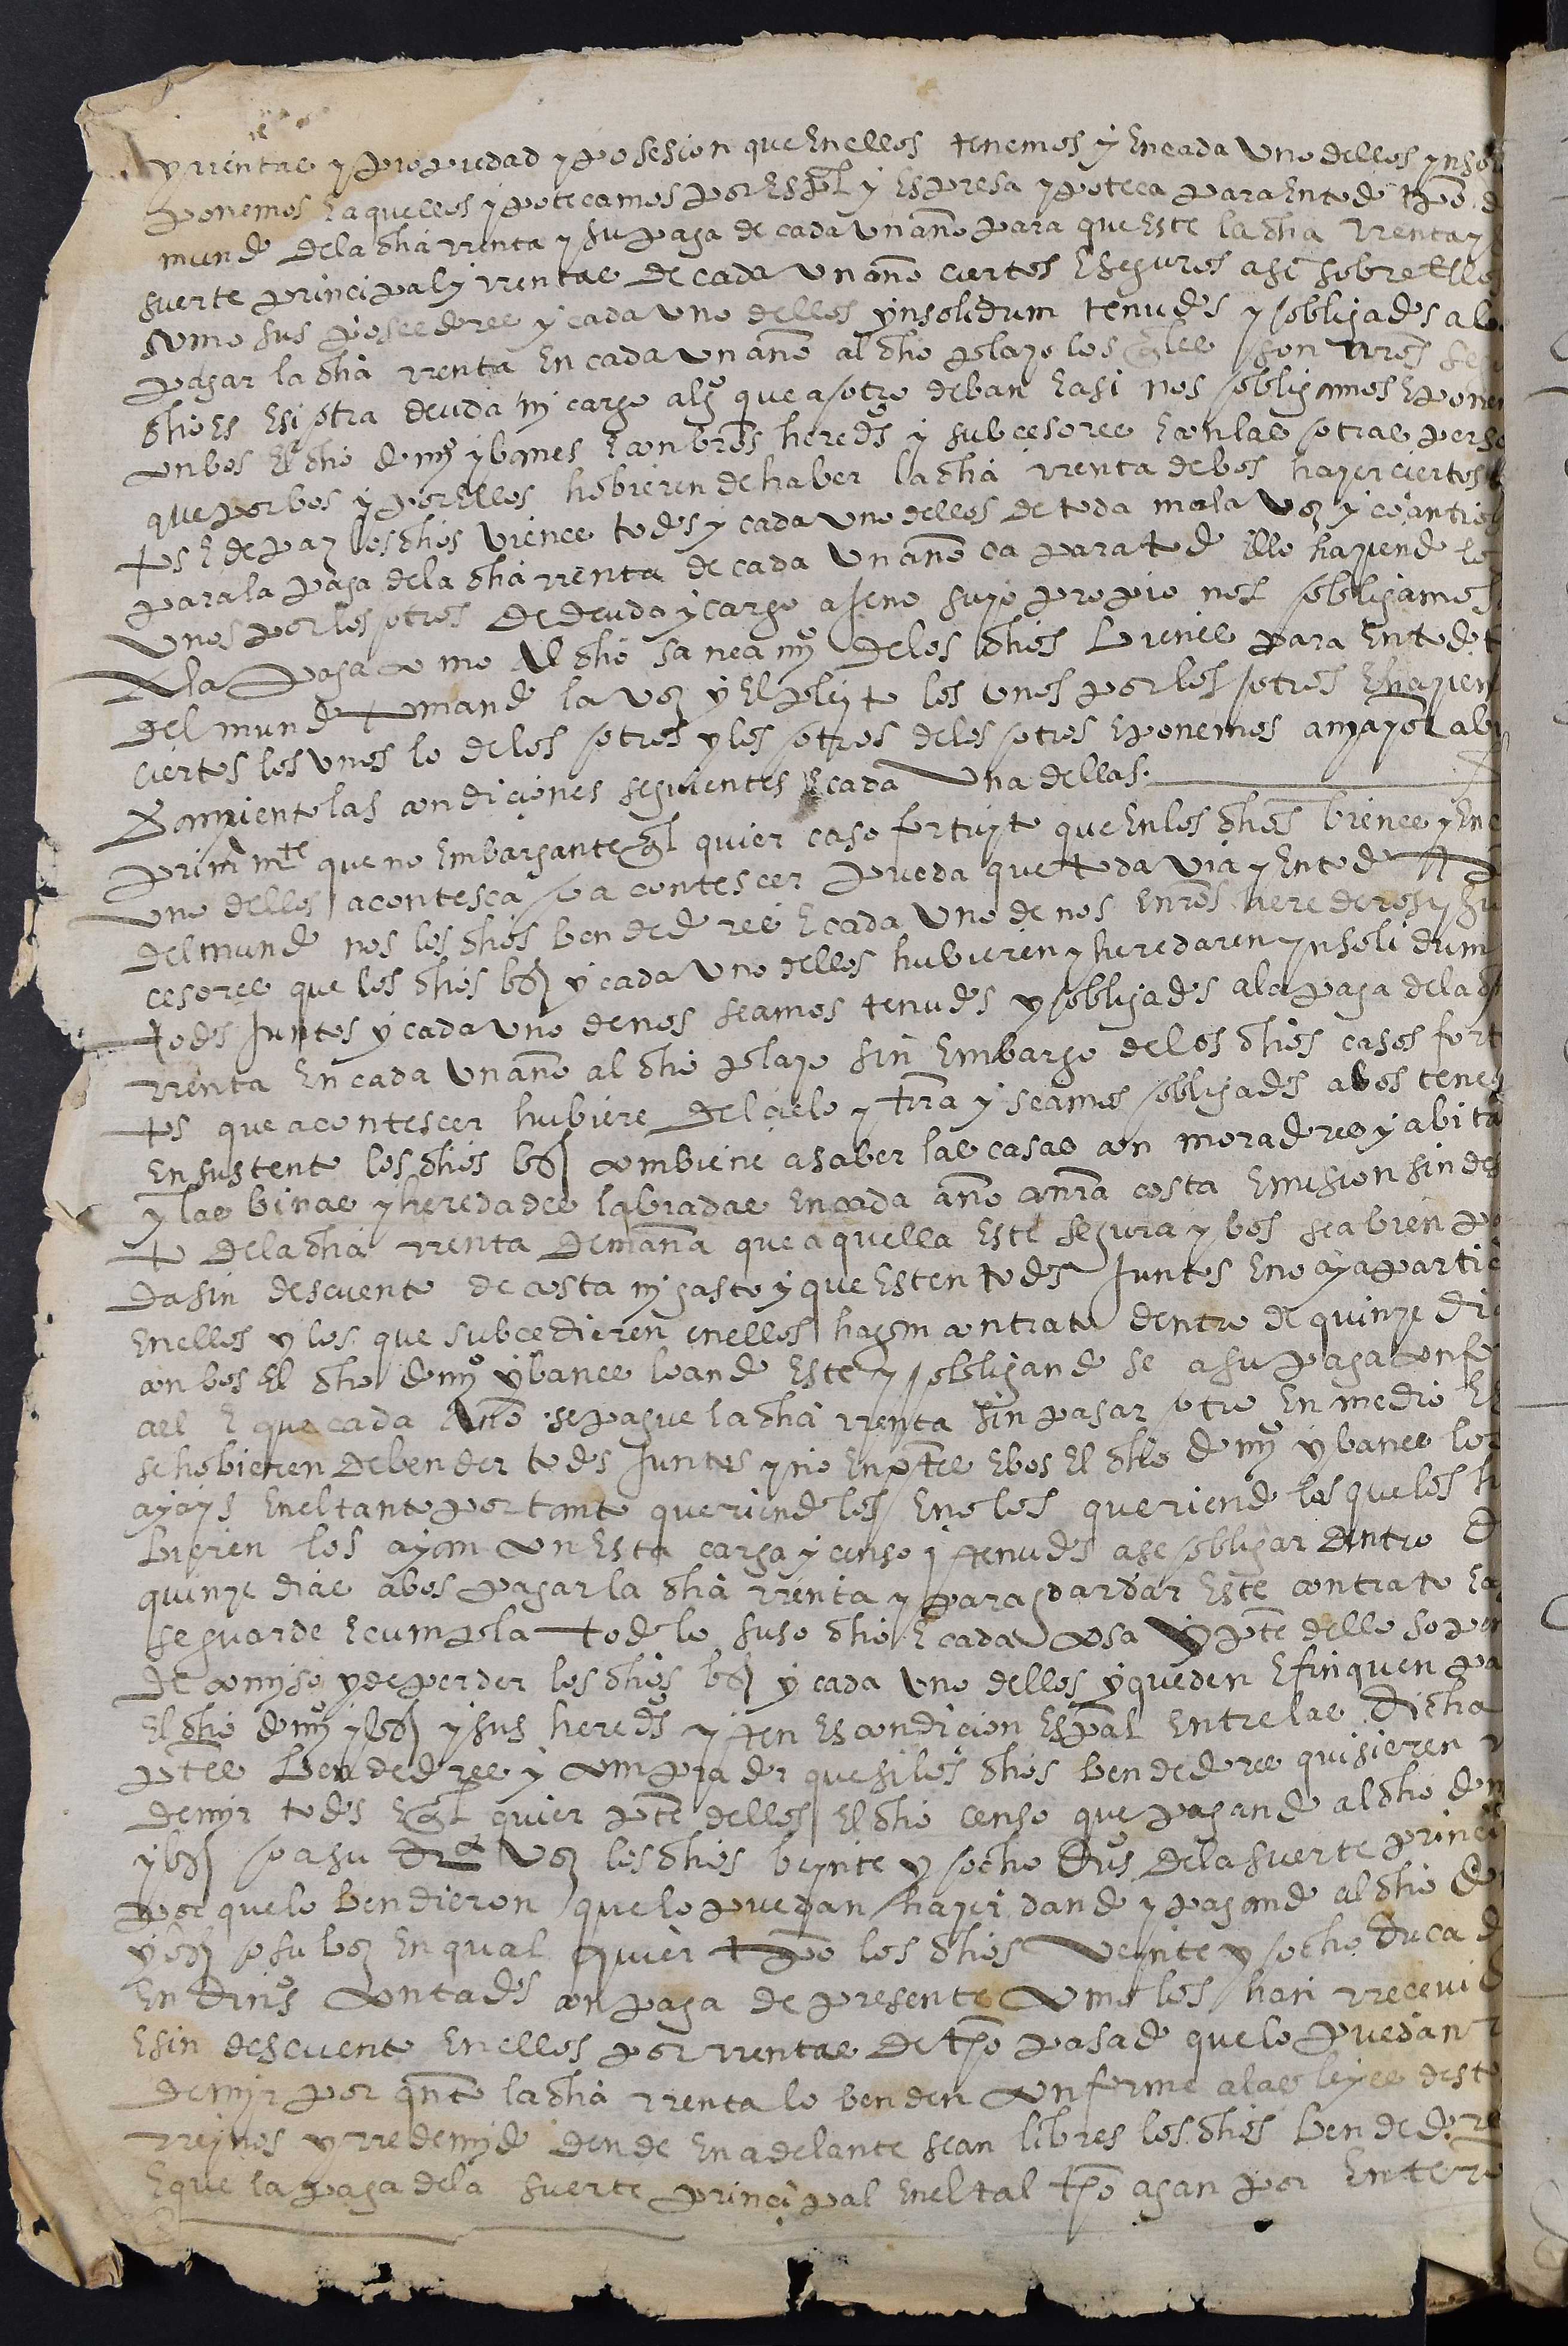 y rrentas y propiedad y posesion que en ellos tenemos y en cada uno dellos ynso
ponemos e aquellos ypotecamos por espal y espresa ypoteca para en todo tpo d
mundo de la dha rrenta y su paga de cada un año para que este la dha rrenta y
suerte principal y rrentas de cada un año ciertos e seguros asi sobre ellos
como sus poseedores y cada uno dellos ynsolidum tenudos y obligados a la
pagar la dha rrenta en cada un año al dho plazo los qles son nros se
dho es e sin otra deuda ni cargo algo que a otro deban e asi nos obligamos e pone
con bos el dho domyo ybanes e con bros heredos y subcesores e con las otras perso
que por bos y por ellos hobieren de haber la dha rrenta de bos hazer ciertos
tos e de paz los dhos bienes todos y cada uno dellos de toda mala voz y contio
para la paga de la dha rrenta de cada un año ca para todo ello haziendo lo
unos por los otros de deuda y cargo ajeno suyo propio nos obligamos
a la paga como al dho saneamyo de los dhos bienes para en todo t
del mundo tomando la voz y el pleyto los unos por los otros e hazien
ciertos los unos lo de los otros y los otros de los otros e ponemos a mayor ab
damyento las condiciones seguientes e cada una dellas.
primamte que no embargante ql quier caso fortuyto que en los dhos bienes y en c
uno dellos acontesca o acontescer pueda que toda via y en todo tpo
del mundo nos los dhos bendedores e cada uno de nos e nros herederos y su
cesores que los dhos bes y cada uno dellos hubieren y heredaren ynsolidum
todos juntos y cada uno de nos seamos tenudos y obligados a la paga de la dh
rrenta en cada un año al dho plazo sin embargo de los dhos casos fort
tos que acontescer hubiere del cielo y trra y seamos obligados a los tener
en sustento los dhos bes combiene a saber las casas con moradores y abita
y las binas y heredades labradas en cada año a nra costa e mision sin des
to de la dha rrenta de mana que aquella este segura y bos sea bien pa
da sin descuento de costa ny gasto y que esten todos juntos e no aya partic
en ellos y los que subcedieren en ellos hagan contrato dentro de quinze di
con bos el dho domyo ybanes loando este y obligandose a su paga conforme
a el e que cada año se pague la dha rrenta sin pasar otro en medio e si
se hobieren de bender todos juntos y no en ptes e bos el dho domyo ybanes los
ayays en el tanto por tanto queriendolos e no los queriendo los que los h
bieren los ayan con esta carga y censo y tenudos a se obligar dentro d
quinze dias a bos pagar la dha rrenta y para guardar este contrato e a
se guarde e cumpla todo lo suso dho e cada cosa y pte dello so pe
de comyso y de perder los dhos bes y cada uno dellos y queden e finquen pa
el dho domyo ybes y sus heredos yten es condicion espal entre las dicha
ptes bendedores y comprador que si los dhos bendedores quisieren r
demyr todos e ql quier pte dellos el dho censo que pagando al dho dom
ybes o a su dra voz los dhos beynte y ocho dus de la suerte princi
por que lo bendieron que lo puedan hazer dando y pagando al dho do
ybes o su boz en qual quier tpo los dhos veynte y ocho ducad
en dinos contados con paga de presente como los han rrecevid
e sin descuento en ellos por rrentas de tpo pasado que lo puedan r
demyr por qnto la dha rrenta lo benden conforme a las leyes desto
rreynos y rredemydo dende en adelante sean libres los dhos bendedore
e que la paga de la suerte principal en el tal tpo agan por entero